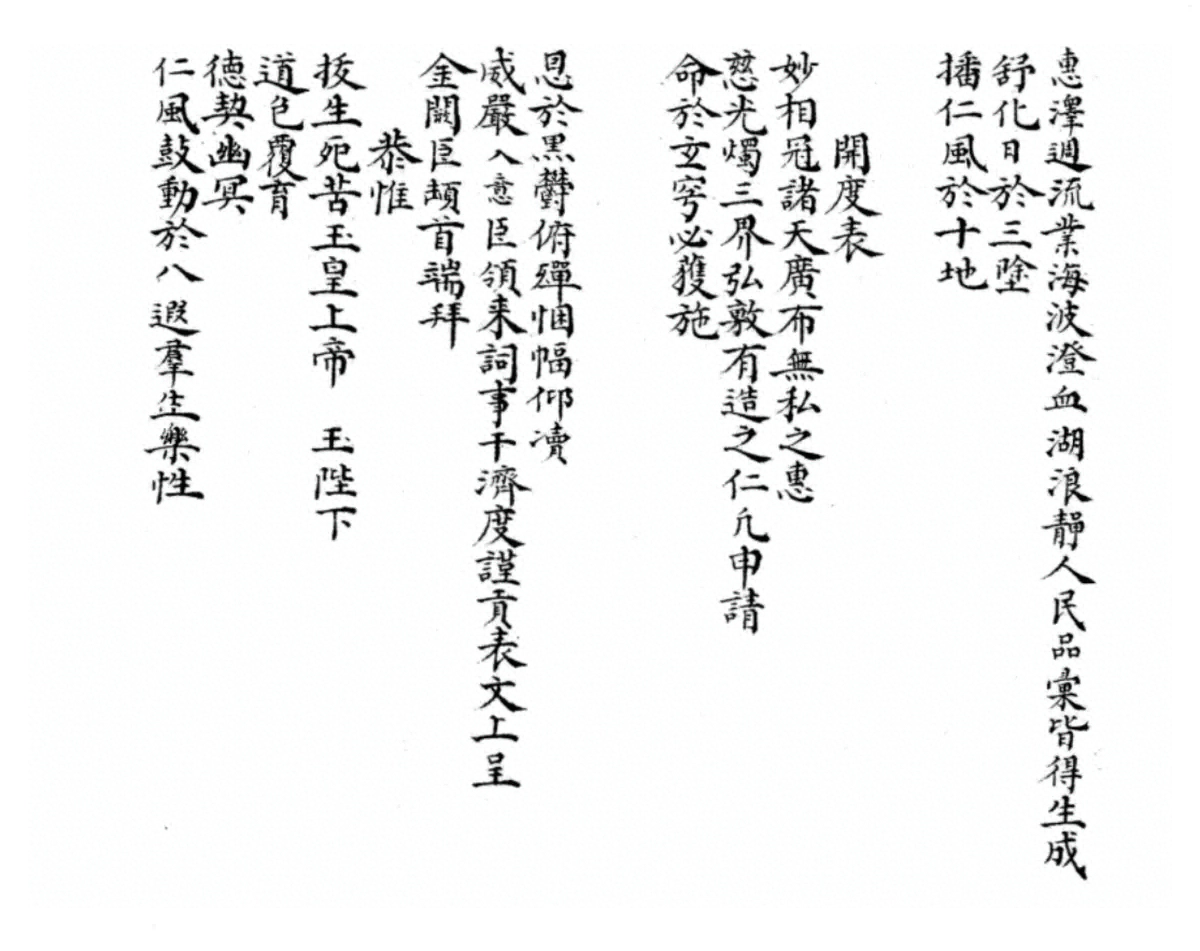 惠澤週流業海波澄血湖浪靜人民品彙皆得生成
舒化日於三塗
播仁風於十地
開度表
妙相冠諸天廣布無私之惠
慈光燭三界弘敷有造之仁凢申請
命於玄穹必獲施
恩於黑欝俯殫悃幅仰凟
威嚴入意臣領来詞事干濟度謹貢表文上呈
金闕臣頡首端拜
恭惟
拔生死苦玉皇上帝 玉陛下
道包覆育
德契幽冥
仁風鼓動於八遐羣生樂性